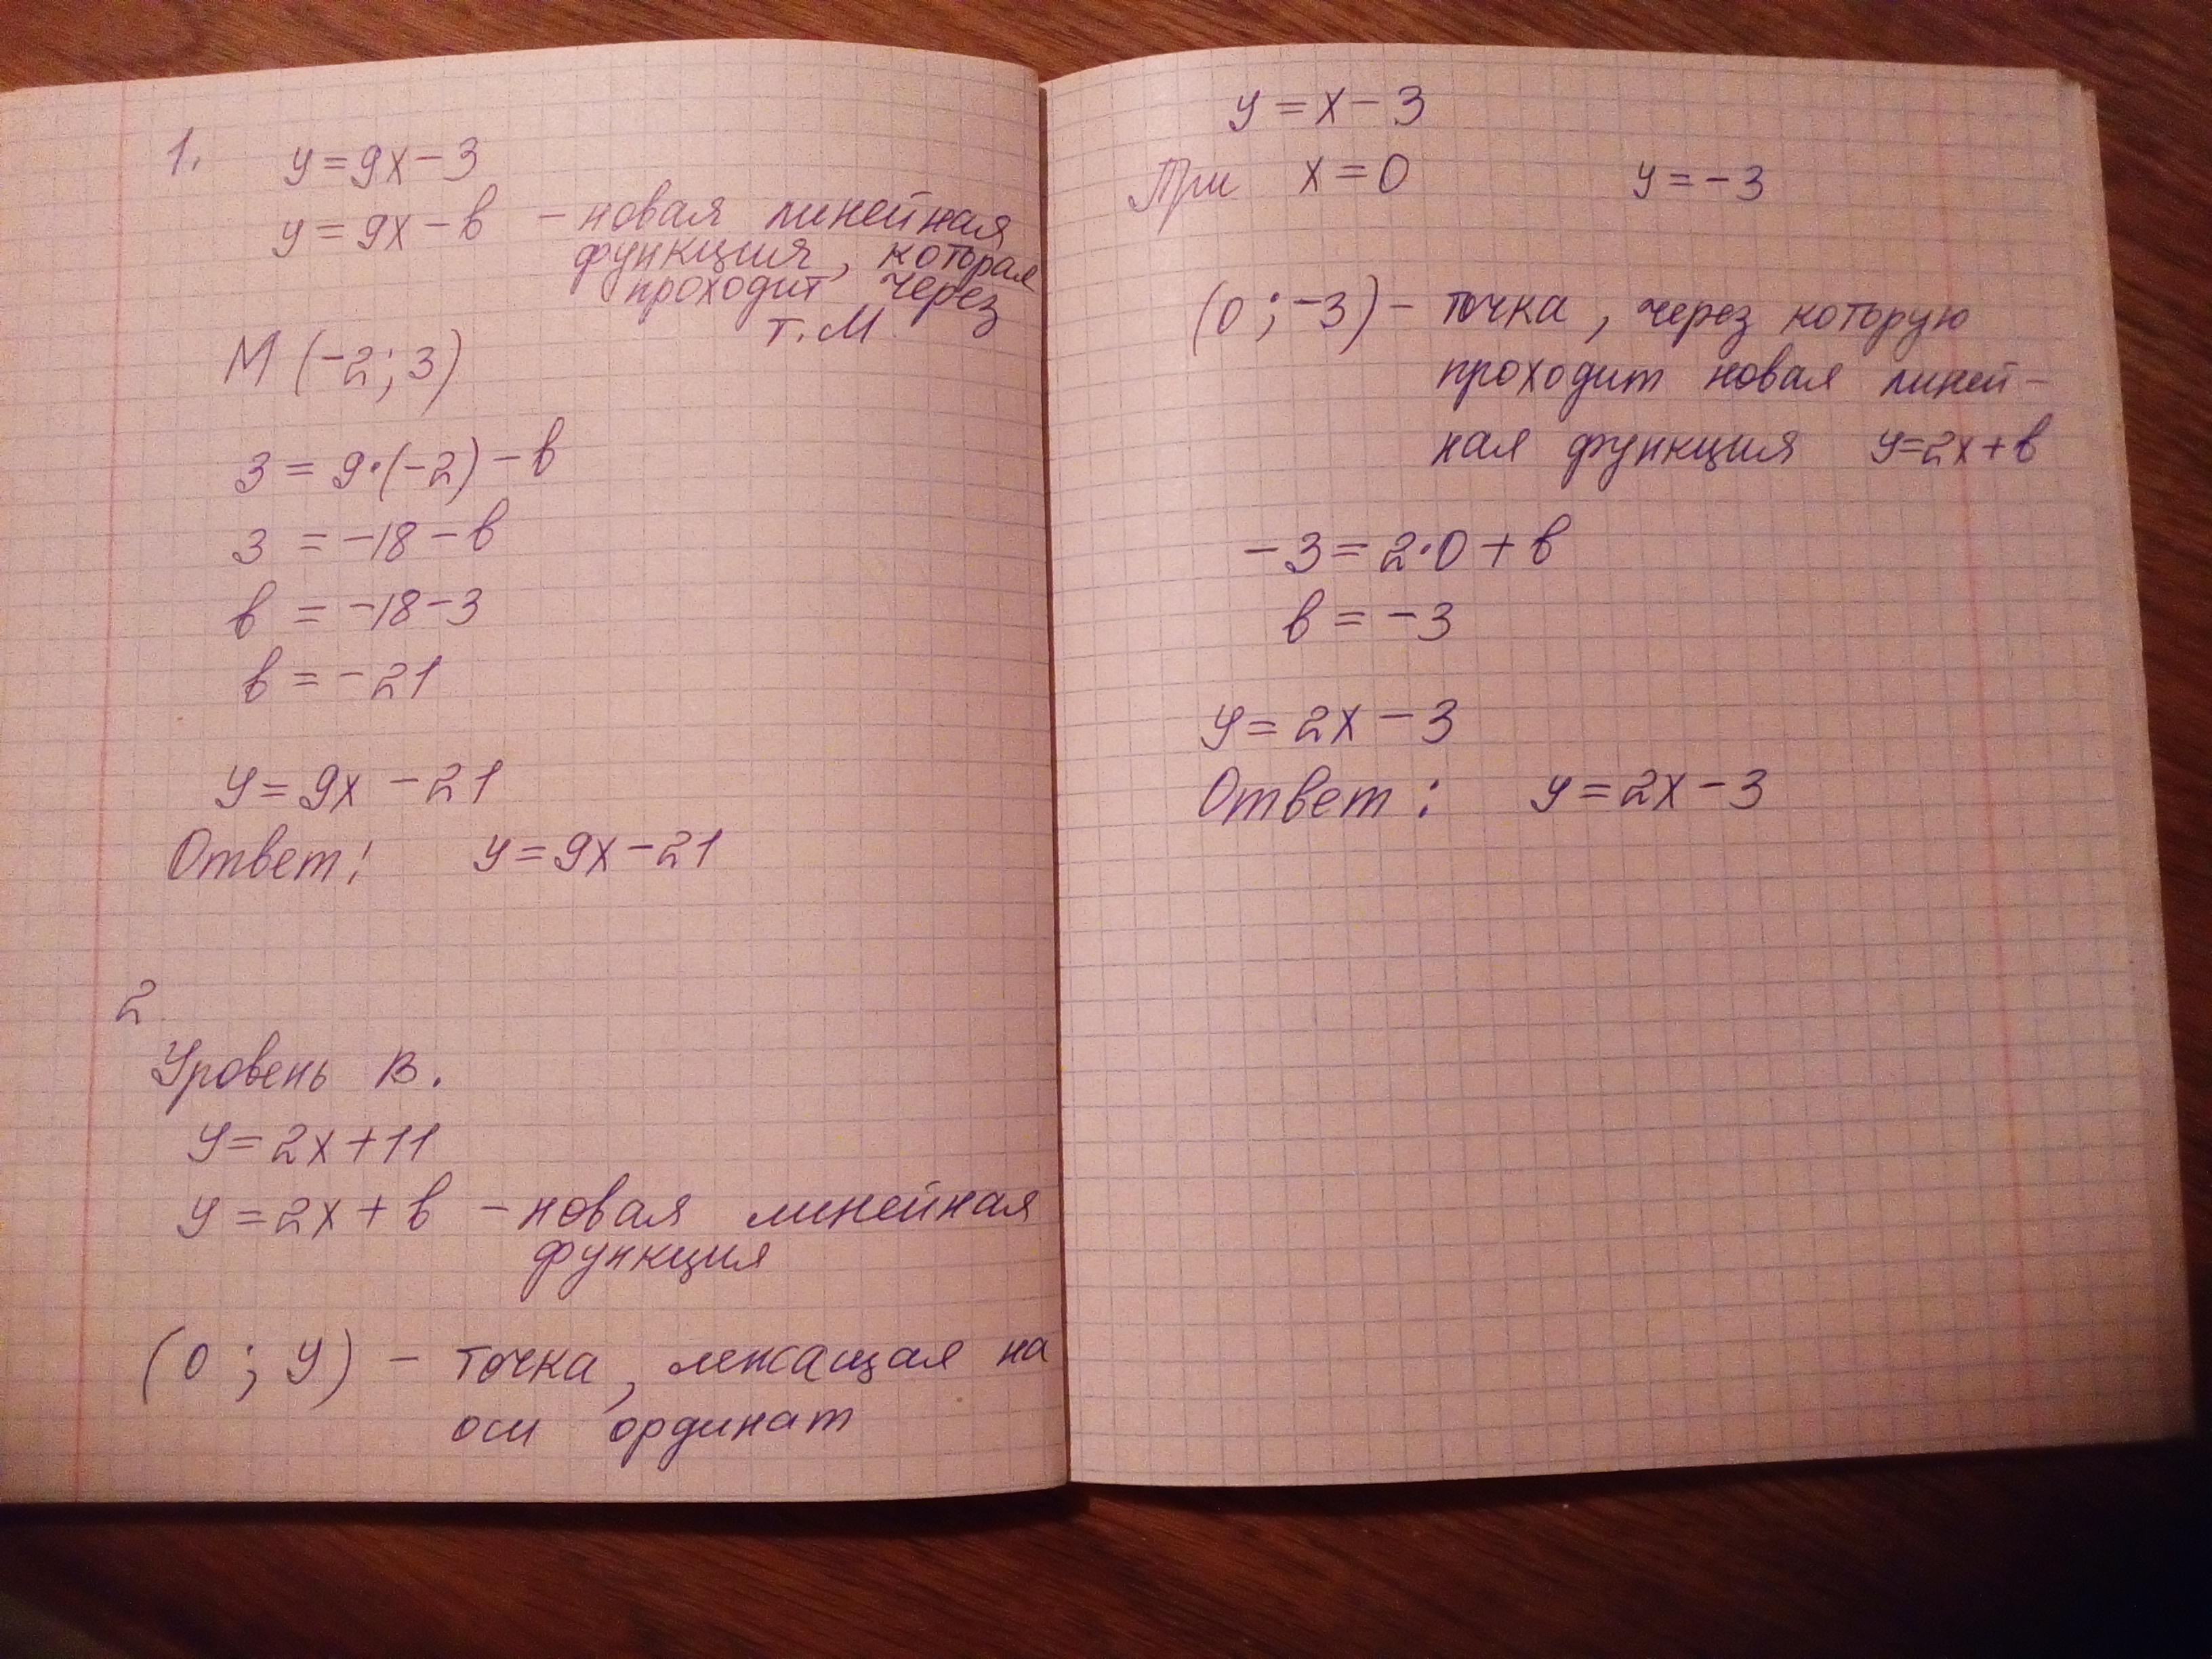 1. y = 9x - 3
y = 9x - b - новая линейная
функция, которая
проходит через
т. М
M (-2; 3)
3 = 9·(-2) - b
3 = -18 - b
b = -18 - 3
b = -21
y = 9x - 21
Ответ: y = 9x - 21
2.
Уровень В.
y = 2x + 11
y = 2x + b - новая линейная
функция
(0; y) - точка, лежащая на
оси ординат
y = x - 3
При x = 0 y = -3
(0; -3) - точка, через которую
проходит новая линей-
ная функция y = 2x + b
-3 = 2·0 + b
b = -3
y = 2x - 3
Ответ: y = 2x - 3